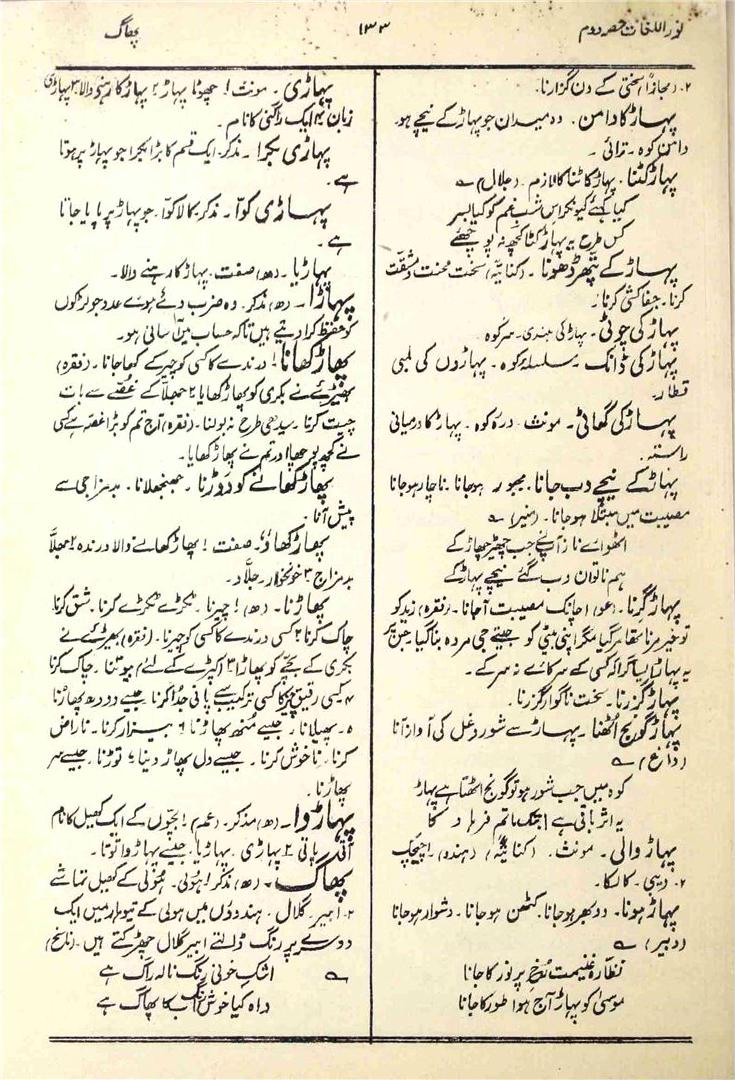 نور اللغات حصہ دوم
۱۳۳
پھاگ
۲۔ (مجازاً) سختی کے دن گزارنا۔
پہاڑ کا دامن۔ وہ میدان جو پہاڑ کے نیچے ہو۔
دامن کوہ۔ ترائی۔
پہاڑ کٹنا۔ پہاڑ کاٹنا کا لازم۔ (جلال) ؎
کیا کہئے کیونکر اس شب غم کو کیا بسر
کس طرح یہ پہاڑ کٹا کچھ نہ پوچھئے
پہاڑ کے پتھر ڈھونا۔ (کنایۃً) سخت محنت و مشقت
کرنا۔ جفا کشی کرنا۔
پہاڑ کی چوٹی۔ پہاڑ کی بلندی۔ سر کوہ
پہاڑ کی ڈانگ۔ سلسلۂ کوہ۔ پہاڑوں کی لمبی
قطار۔
پہاڑ کی گھاٹی۔ مونث۔ درۂ کوہ۔ پہاڑ کا درمیانی
راستہ۔
پہاڑ کے نیچے دب جانا۔ مجبور ہو جانا۔ ناچار ہو جانا
مصیبت میں مبتلا ہو جانا۔ (منیر) ؎
اٹھوائے ناز آپنے جب چھیڑ چھاڑ کے
ہم ناتوان دب گئے نیچے پہاڑ کے
پہاڑ گرنا۔ (عو) اچانک مصیبت آجانا۔ (فقرہ) زید کو
تو خیر مرنا تھا مر گیا مگر اپنی بیٹی کو جیتے جی مردہ بنا گیا
یہ پہاڑ ایسا گرا کہ کسی کے سرکائے نہ سرکے۔
پہاڑ گزرنا۔ سخت ناگوار گزرنا۔
پہاڑ گونج اٹھنا۔ پہاڑ سے شور و غل کی آواز آنا
(داغ) ؎
کوہ میں جب شور ہو تو گونج اٹھتا ہے پہاڑ
یہ اثر باقی ہے ابتک ماتم فرہاد کا
پہاڑ والی۔ مونث۔ (کنایۃً) (ہندو) ا چیچک
۲۔ دیبی۔ کالکا۔
پہاڑ ہونا۔ دوبھر ہو جانا۔ کٹھن ہو جانا۔ دشوار ہو جانا
(دبیر) ؎
نظارہ غنیمت رخ پر نور کا جانا
موسیٰ کو پہاڑ آج ہوا طور کا جانا
پہاڑی۔ مونث ا چھوٹا پہاڑ ۲ پہاڑ کا رہنے والا ۳ پہاڑی
زبان ۴ ایک راگنی کا نام۔
پہاڑی بکرا۔ مذکر۔ ایک قسم کا بڑا بکرا جو پہاڑ پر ہوتا
ہے۔
پہاڑی کوّا۔ مذکر۔ کالا کوّا۔ جو پہاڑ پر پایا جاتا
ہے۔
پہاڑیا۔ (ھ) صفت۔ پہاڑ کا رہنے والا۔
پہاڑا۔ (ھ) مذکر۔ وہ ضرب دئے ہوئے عدد جو لڑکوں
کو حفظ کرا دیتے ہیں تاکہ حساب میں آسانی ہو۔
پھاڑ کھانا ا درندے کا کسی کو چیر کے کھا جانا۔ (فقرہ)
بھیڑئے نے بکری کو پھاڑ کھایا ۲ جھلّا کے غصّے سے بات
چیت کرنا۔ سیدھی طرح نہ بولنا۔ (فقرہ) آج تم کو بڑا غصہ ہے کسی
نے کچھ پوچھا اور تم نے پھاڑ کھایا۔
پھاڑ کھانے کو دوڑنا۔ جھنجھلانا۔ بدمزاجی سے
پیش آنا۔
پھاڑ کھاؤ۔ صفت ا پھاڑ کھانے والا درندہ ۲ جھلّا
بدمزاج ۳ خونخوار۔ جلّاد۔
پھاڑنا۔ (ھ) ا چیرنا۔ ٹکڑے ٹکڑے کرنا۔ شق کرنا۔
چاک کرنا ۲ کسی درندے کا کسی کو چیرنا۔ (فقرہ) بھیڑئے نے
بکری کے بچّے کو پھاڑا ۳ کپڑے کے لئے بیونتنا۔ چاک کرنا
۴ کسی رقیق چیز کا کسی ترکیب سے پانی جدا کرنا جیسے دودھ پھاڑنا
۵۔ پھیلانا۔ جیسے منھ پھاڑنا ۶ بیزار کرنا۔ ناراض
کرنا۔ ناخوش کرنا۔ جیسے دل پھاڑ دینا ۷ توڑنا۔ جیسے سر
پھاڑنا۔
پہاڑوا۔ (ھ) مذکر۔ (عم) ا بچوں کے ایک کھیل کا نام
۲ پہاڑی۔ پہاڑیا۔ جیسے پہاڑوا توتا۔
پھاگ۔ (ھ) مذکر ا ہولی۔ ہولی کے کھیل تماشے
۲۔ ابیر۔ گلال۔ ہندوؤں میں ہولی کے تیوہار میں ایک
دوسرے پر رنگ ڈالتے ابیر گلال چھڑکتے ہیں۔ (ناسخ)
؎ اشک خونی رنگ نالہ راگ ہے
واہ کیا خوش رنگ اب کا پھاگ ہے